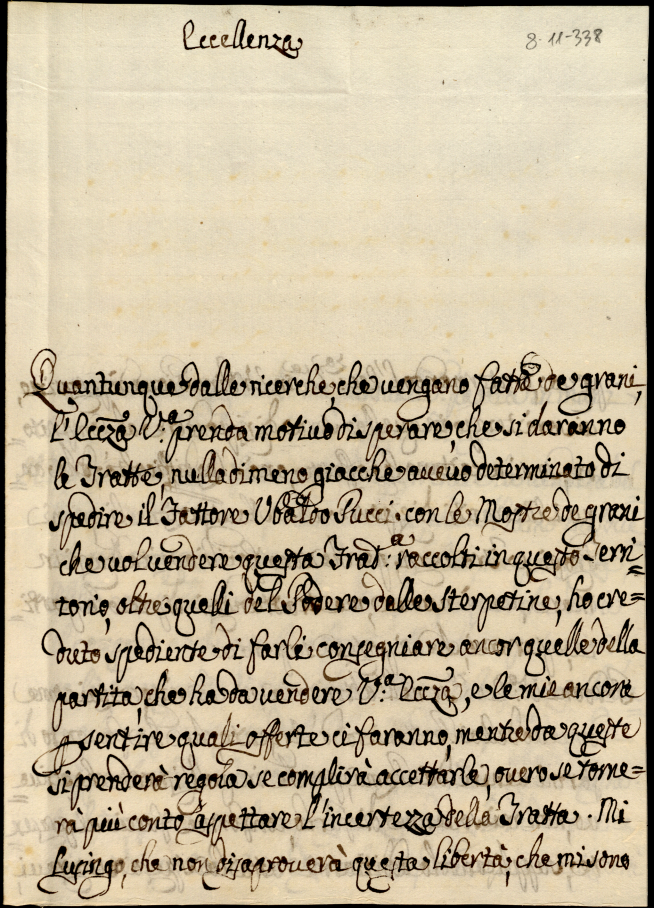 Eccellenza
8-11-338
Quantunque dalle ricerche, che vengano fatte de grani,
l'Eccza V.a prenda motivo di sperare, che si daranno
le Tratte, nulladimeno giacche avevo determinato di
spedire il Fattore Ubaldo Pucci con le Mostre de grani
che vol vendere questa Frad.a raccolti in questo Terri=
torio, oltre quelli del Podere dalle Sterpetine, ho cre=
duto spediente di farli consegniare ancor quelle della
partita, che ha da vendere V.a Eccza, e le mie ancora
p sentire quali offerte ci faranno, mentre da queste
si prenderà regola se complirà accettarle, overo se torne=
ra più conto aspettare l'incertezza della Tratta. Mi
Lusingo, che non disaproverà questa libertà, che mi sono